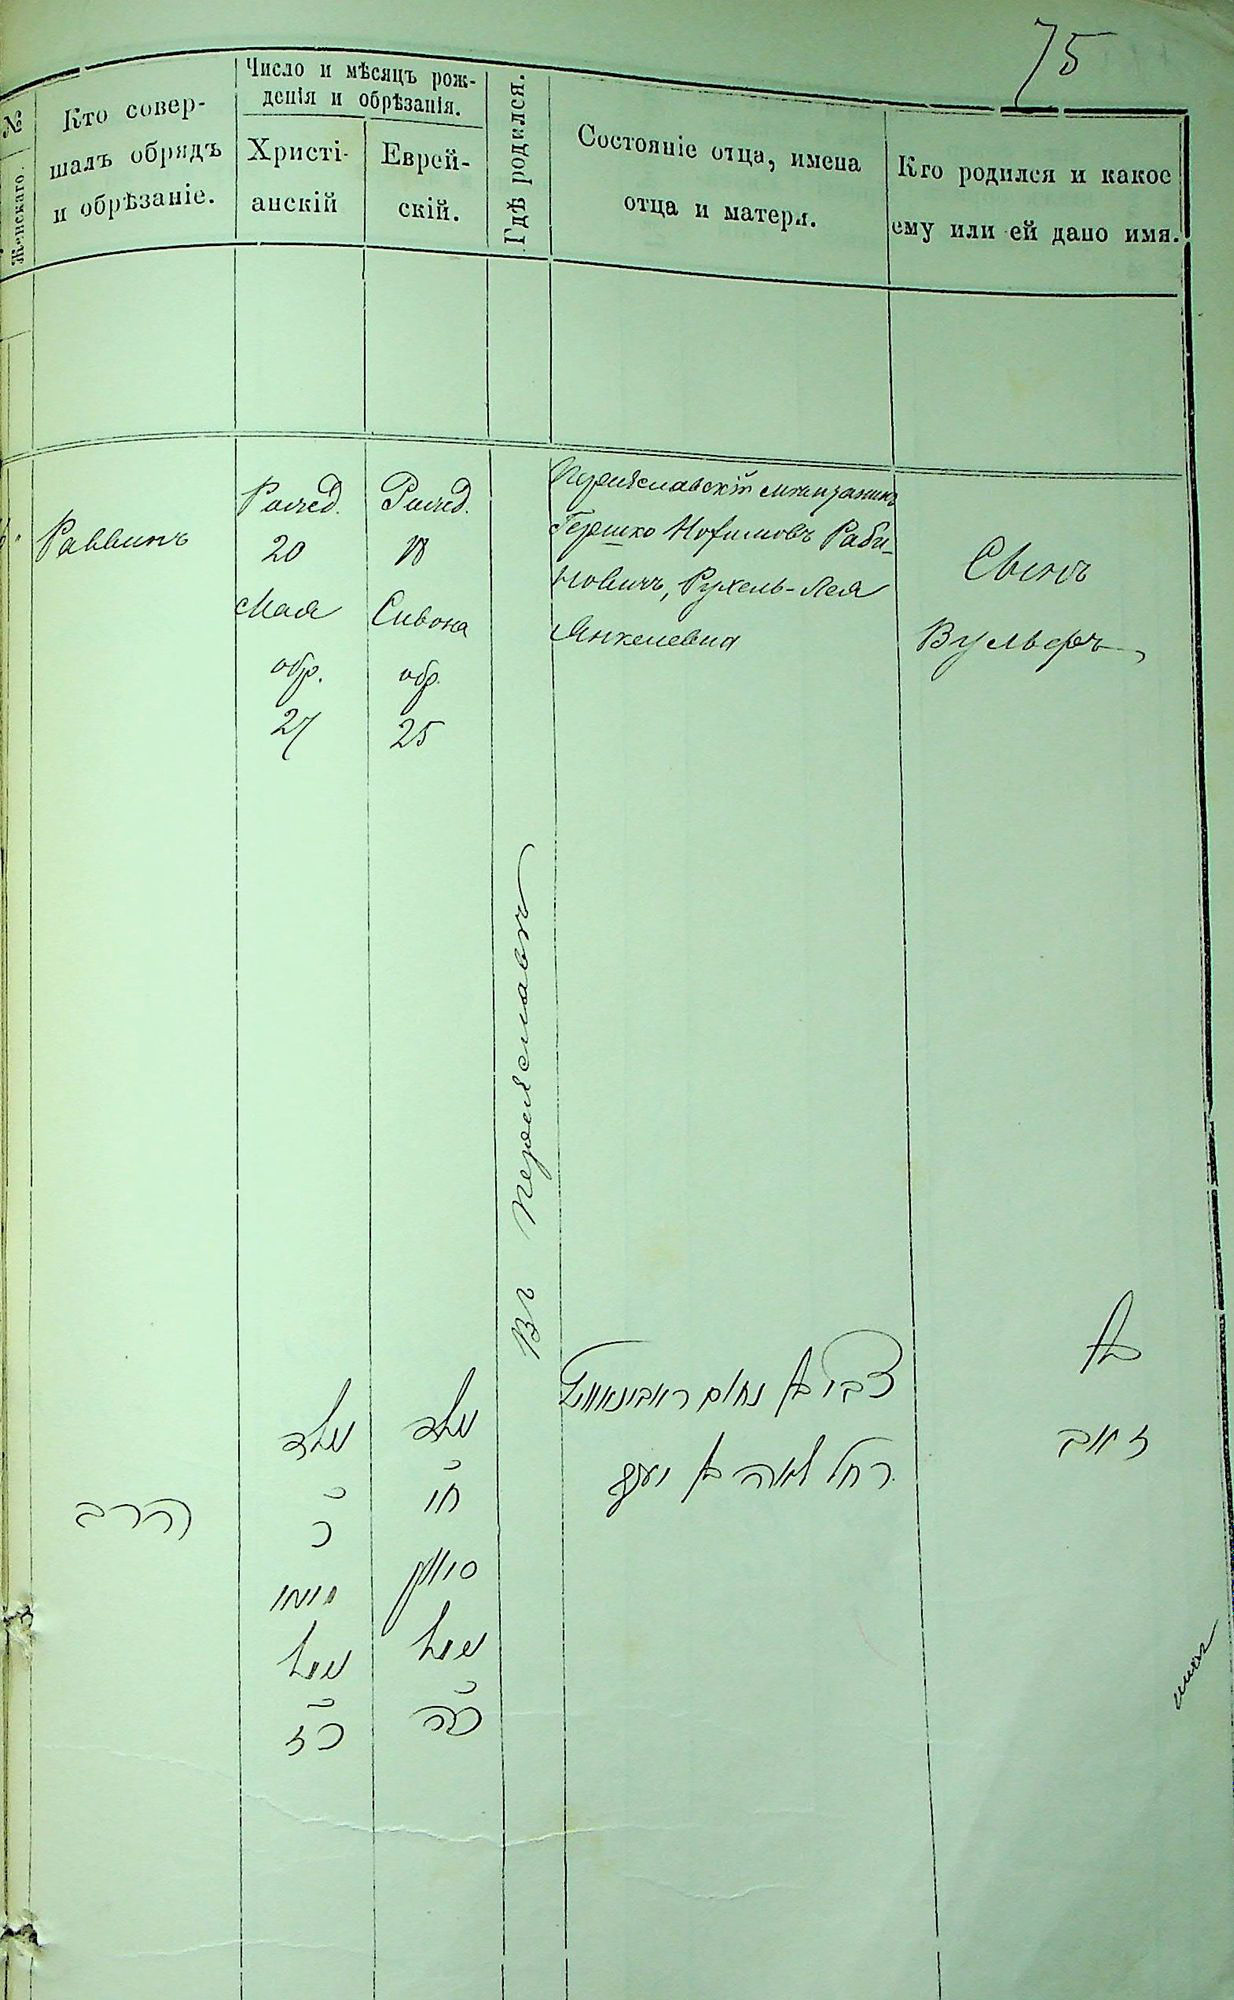 75
№
Женскаго.
Кто совер-
шалъ обрядъ
и обрѣзаніе.
Число и мѣсяцъ рож-
денія и обрѣзанія.
Христі-
анскій
Еврей-
скій.
Гдѣ родился.
Состояніе отца, имена
отца и матери.
Кто родился и какое
ему или ей дано имя.
Раввинъ
Рожед.
20
Мая
обр.
27
Рожед.
18
Сивона
обр.
25
Въ Переяславѣ
Переяславскій мѣщанинъ
Гершко Нохимовъ Раби-
новичъ, Рухель-Лея
Янкелевна
Сынъ
Вульфъ
הרב
נולד
כ
מאי
נימול
כז
נולד
חי
סיוון
נימול
כה
צבי בן נחום ראבינאוויץ
רחל לאה בת יעקב
בן
זאב